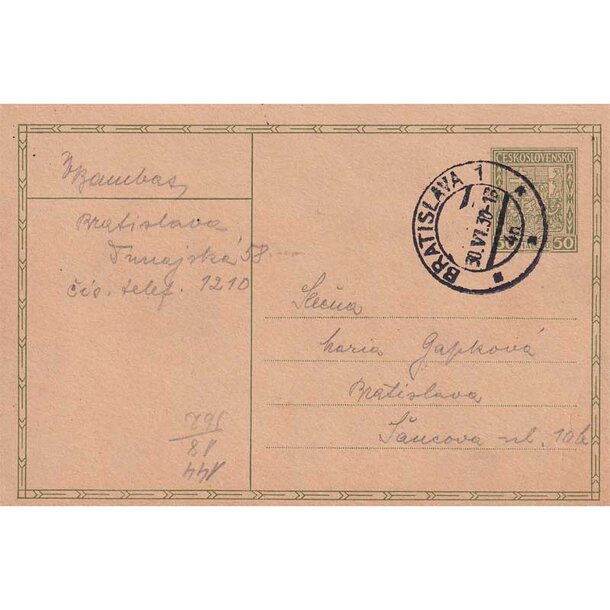 Bambas
Bratislava
Dunajská 58.
čís. telef. 1210
ČESKOSLOVENSKO
50
BRATISLAVA 1
30.VI.30-18
Slečna
Maria Gapková
Bratislava
Šancova ul. 10b
162
18
144